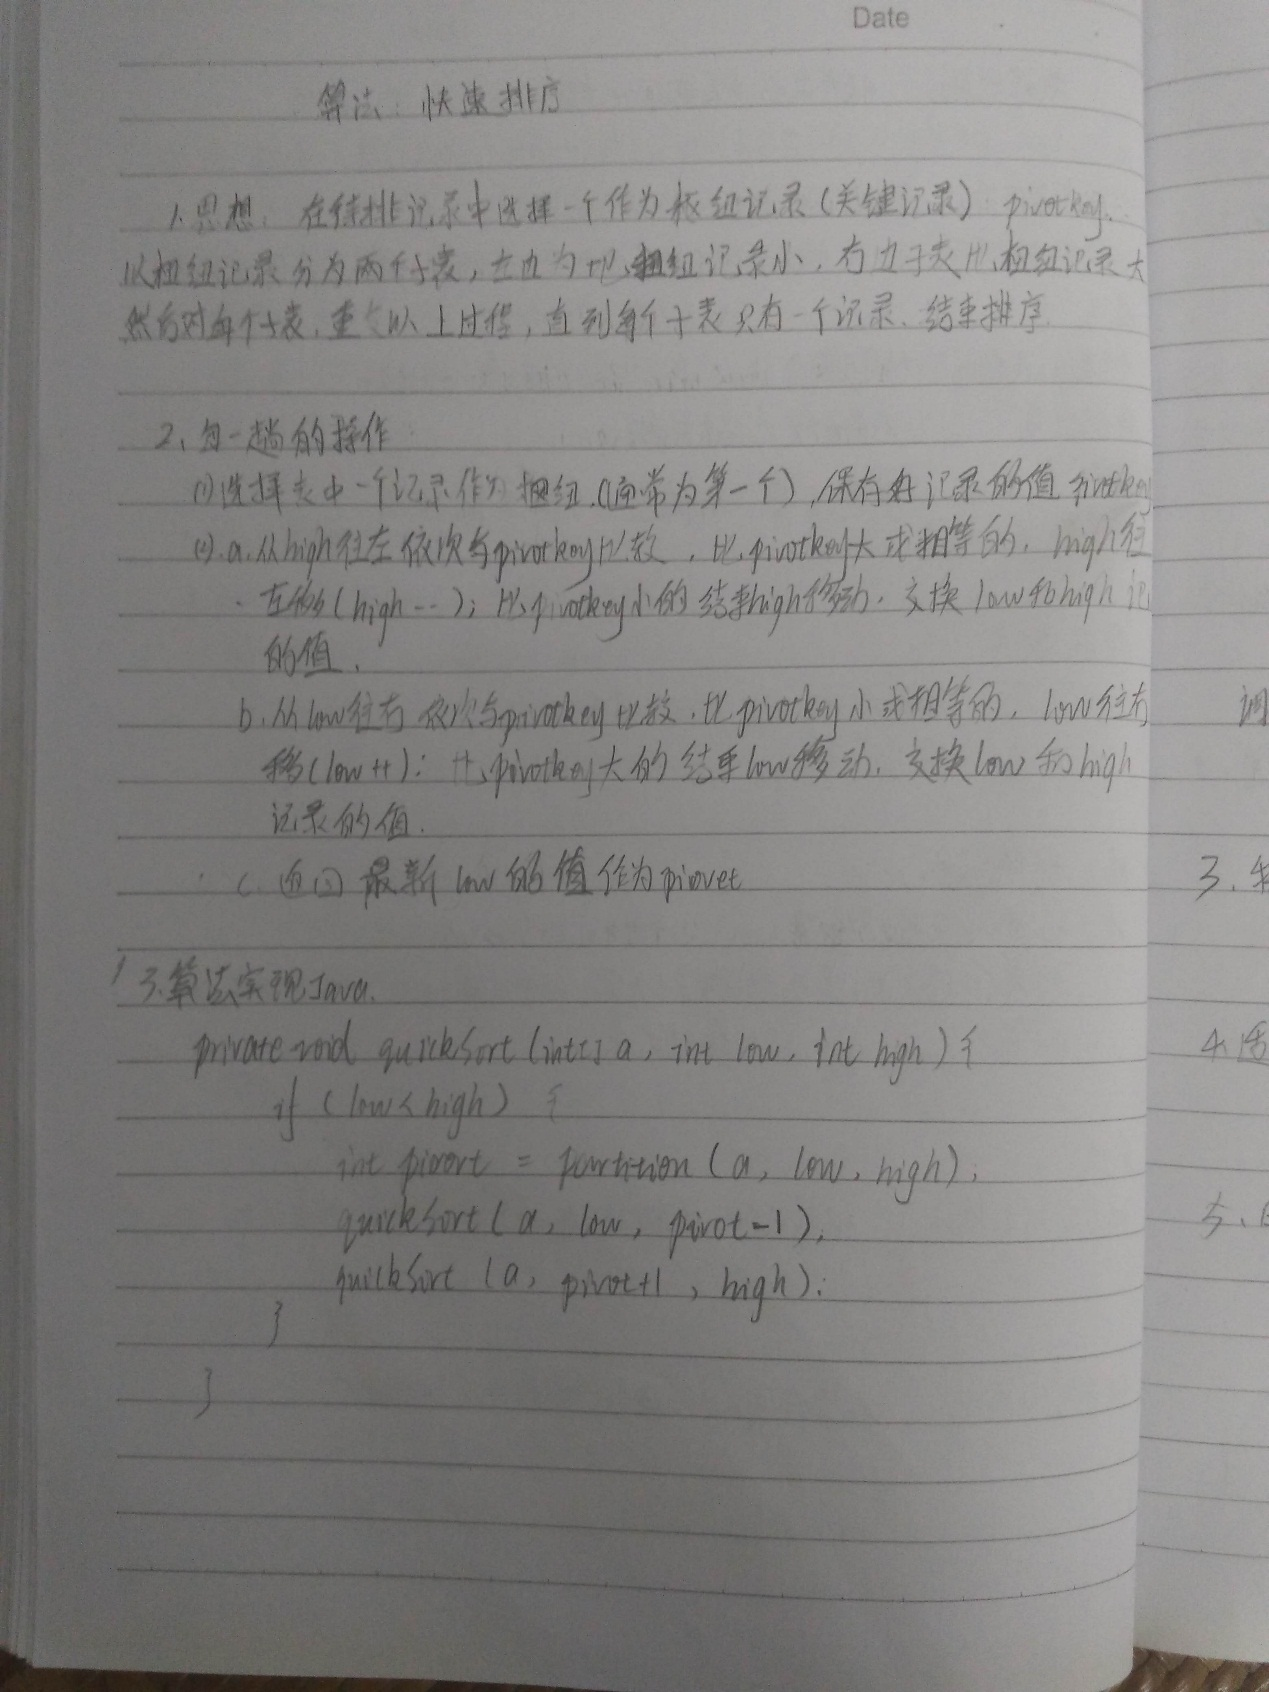 Date
算法：快速排序
1、思想：在待排记录中选择一个作为枢纽记录（关键记录）pivotkey.
以枢纽记录分为两个子表，左边为比枢纽记录小，右边子表比枢纽记录大
然后对每个子表，重复以上过程，直到每个子表只有一个记录、结束排序
2、每一趟的操作
(1)选择表中一个记录作为枢纽（通常为第一个），保存好记录的值 pivotkey
(2).a.从high往左依次与pivotkey比较，比pivotkey大或相等的，high往
左移(high--)；比pivotkey小的结束high移动，交换low和high记
的值.
b.从low往右依次与pivotkey比较，比pivotkey小或相等的，low往右
移(low++)；比pivotkey大的结束low移动，交换low和high
记录的值.
c.返回最新low的值作为piovet
3.算法实现Java.
private void quickSort(int[] a, int low, int high) {
if (low<high) {
int pivort = partition(a, low, high);
quickSort(a, low, pivot-1);
quickSort(a, pivot+1, high);
}
}
调
3、
4.适
5、